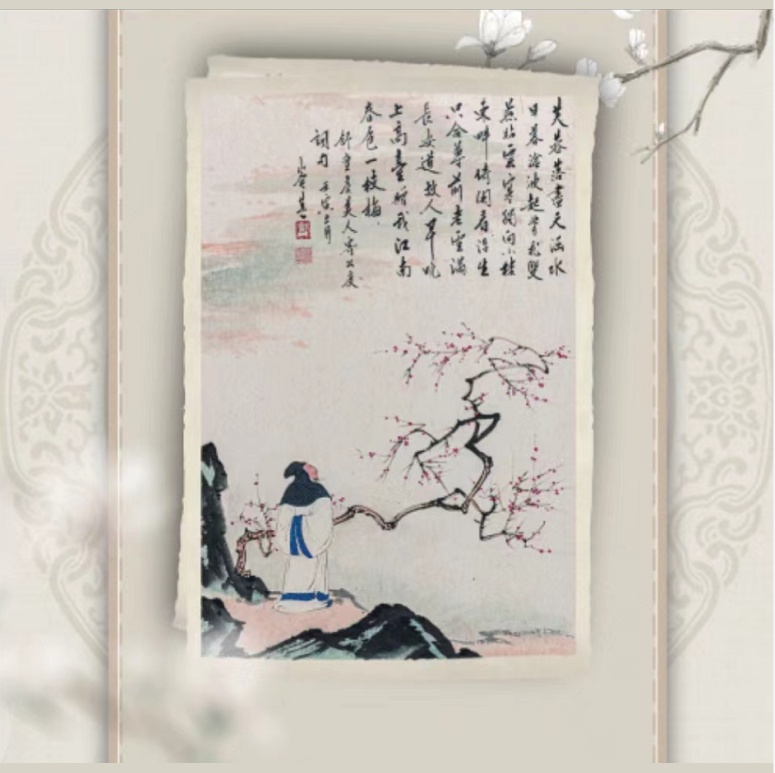 芙蓉落盡天涵水
日暮滄波起背飛雙
燕貼雲寒獨向小樓
東畔倚闌看浮生
只合尊前老雪滿
長安道故人早晚
上高臺贈我江南
春色一枝梅
舒亶虞美人寄公度
詞句 壬寅 月